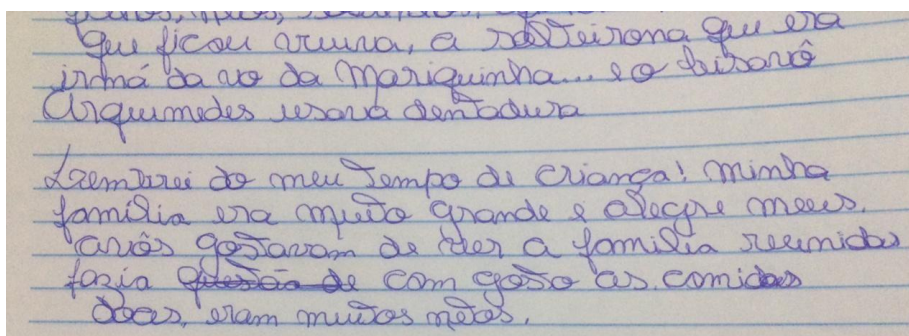 que ficou viuva, a solteirona que era
irmã da vó da Mariquinha... e o bisavô
Arquimedes usava dentadura
Lembrei do meu Tempo de criança! minha
família era muito grande e alegre meus
avós gostavam de ter a família reunidas
fazia questão de com gosto as comidas
boas, eram muitos netos.